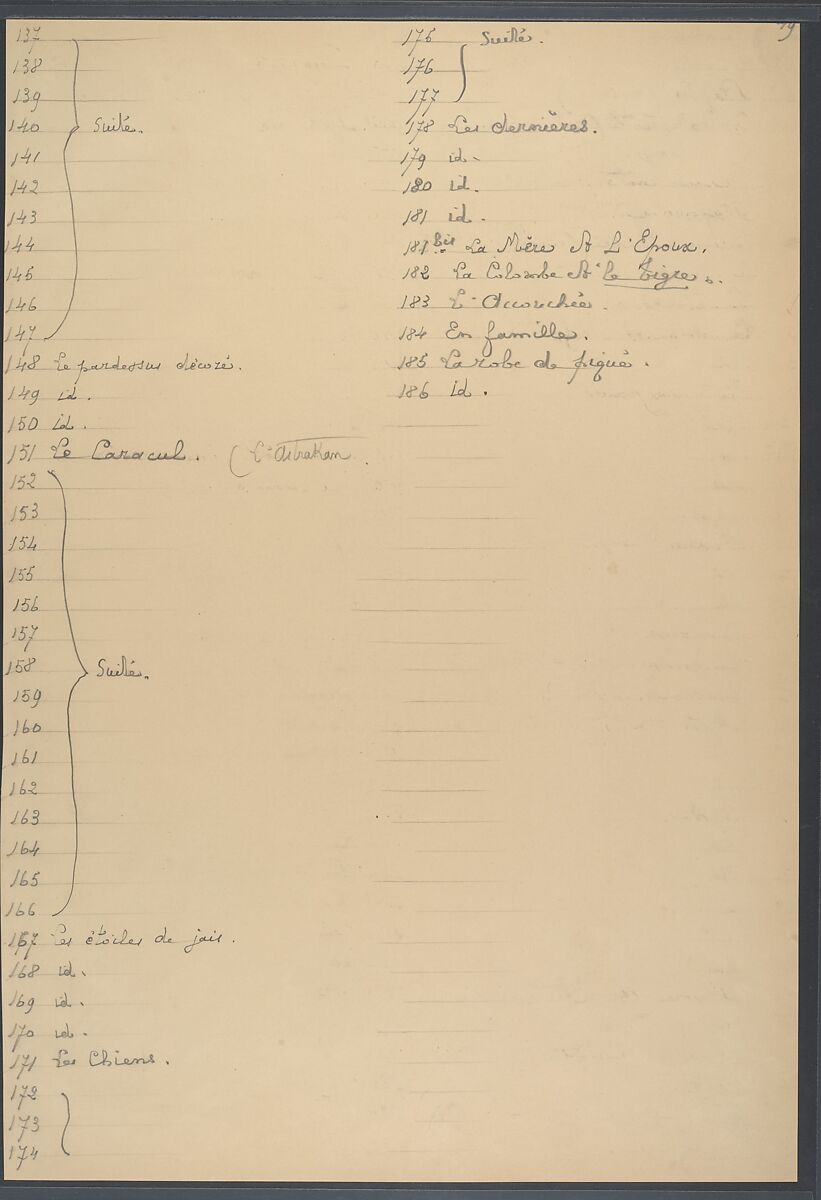 137
138
139
140 Suite.
141
142
143
144
145
146
147
148 Le pardessus décoré.
149 id.
150 id.
151 Le Caracul. (L'Astrakan.
152
153
154
155
156
157
158 Suite.
159
160
161
162
163
164
165
166
167 Les étoiles de jais.
168 id.
169 id.
170 id.
171 Les Chiens.
172
173
174
175 Suite.
176
177
178 Les dernières.
179 id.
180 id.
181 id.
181 bis La Mère et L'Epoux.
182 La Colombe et le Tigre.
183 L'Accouchée.
184 En famille.
185 La robe de piqué.
186 id.